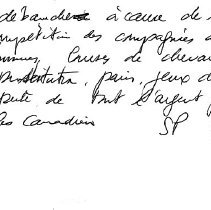 débauches à cause de
compétition des compagnies
Courses de chevau
Prostitution, paris, jeux d
perte de tout l'argent
les Canadiens SP